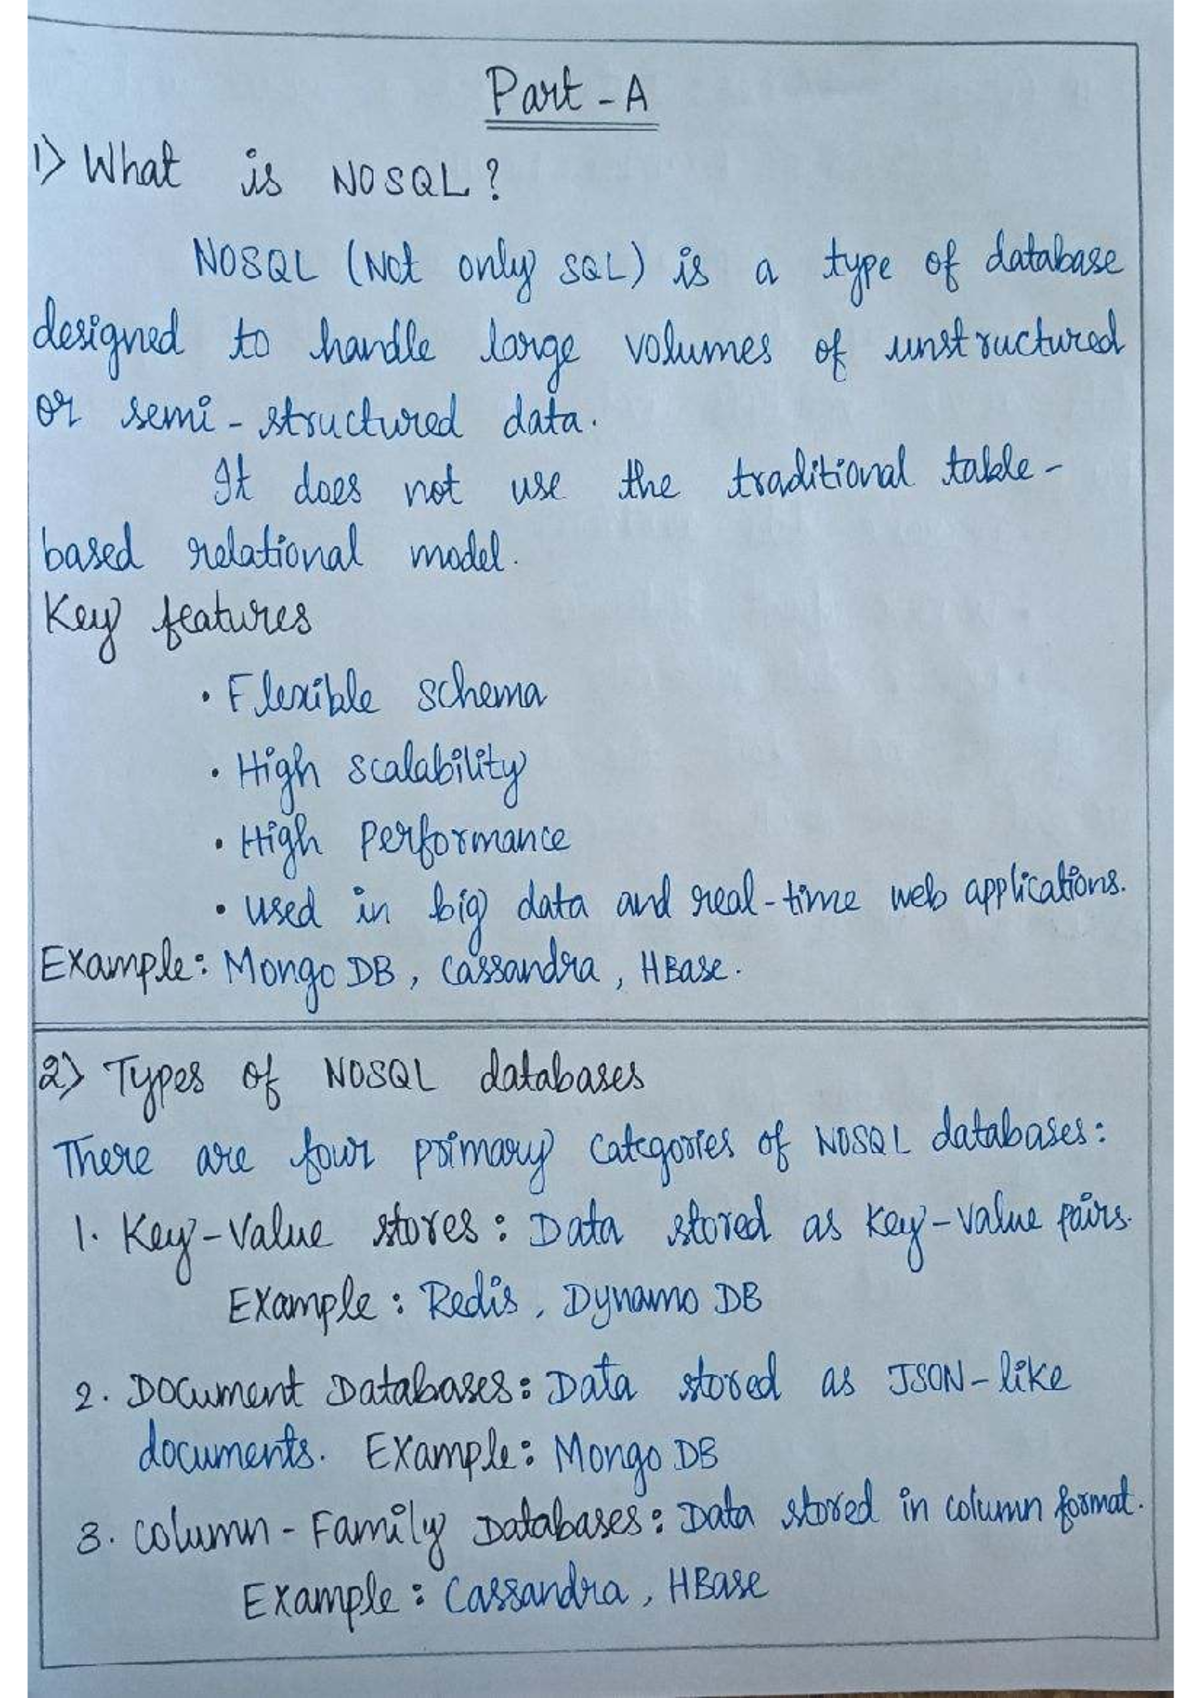 Part - A
1) What is NOSQL?
NOSQL (Not only SQL) is a type of database
designed to handle large volumes of unstructured
or semi-structured data.
It does not use the traditional table-
based relational model.
Key features
• Flexible schema
• High scalability
• High Performance
• used in big data and real-time web applications.
Example: Mongo DB, Cassandra, HBase.
2) Types of NOSQL databases
There are four primary categories of NOSQL databases:
1. Key-Value stores: Data stored as key-value pairs.
Example: Redis, Dynamo DB
2. Document Databases: Data stored as JSON-like
documents. Example: Mongo DB
3. Column-Family Databases: Data stored in column format.
Example: Cassandra, HBase